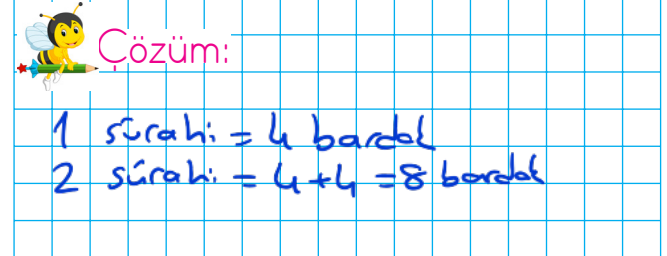 Çözüm:
1 sürahi = 4 bardak
2 sürahi = 4+4 = 8 bardak